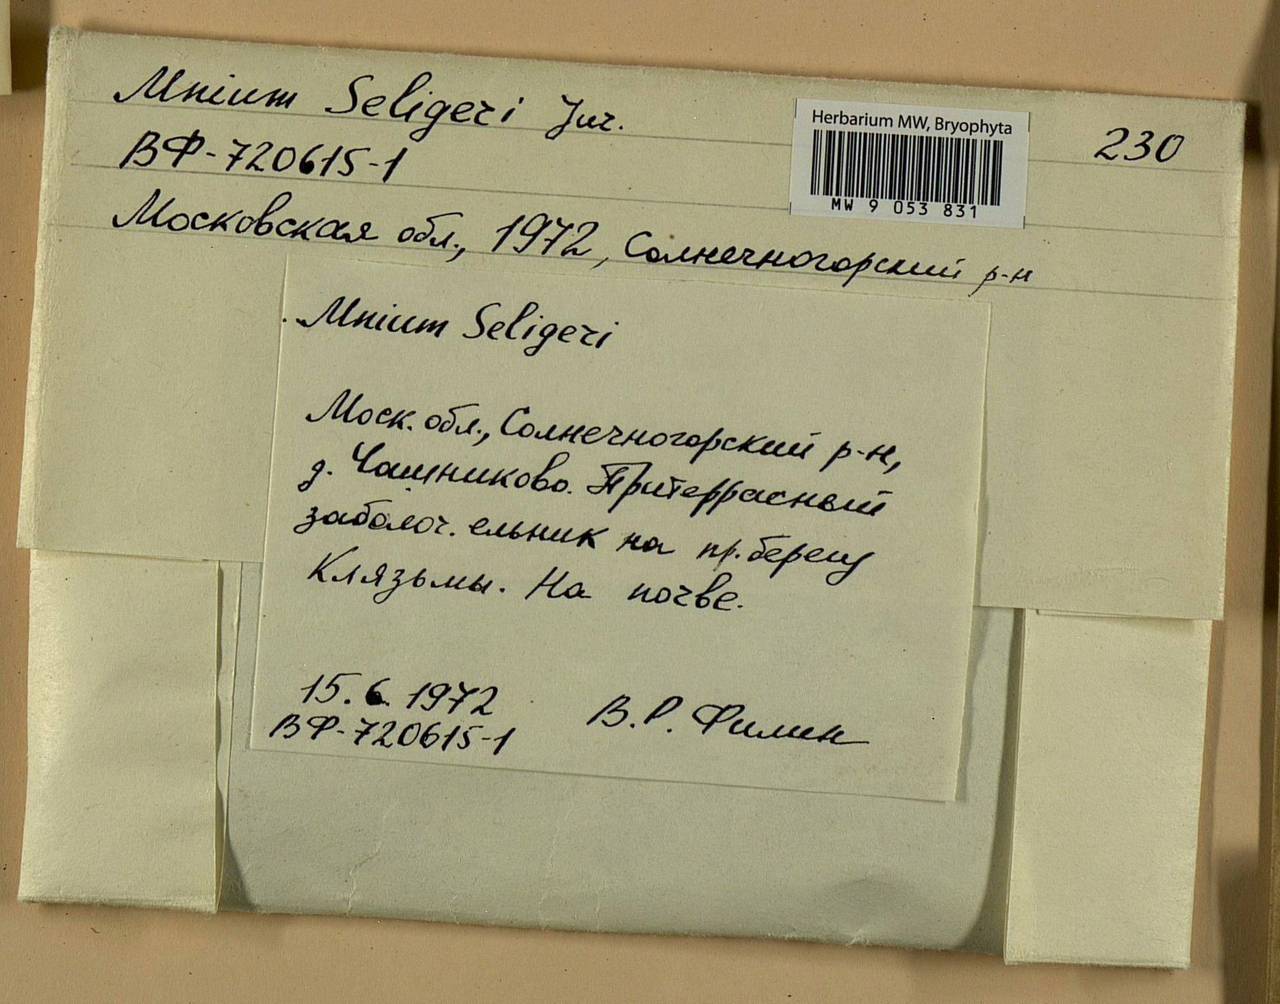 Mnium Seligeri Jur.
Herbarium MW, Bryophyta
230
ВФ-720615-1
MW 9 053 831
Московская обл., 1972, Солнечногорский р-н
Mnium Seligeri
Моск. обл., Солнечногорский р-н,
д. Чашниково. Притеррасный
заболоч. ельник на пр. берегу
Клязьмы. На почве.
15.6.1972
В.Р. Филин
ВФ-720615-1